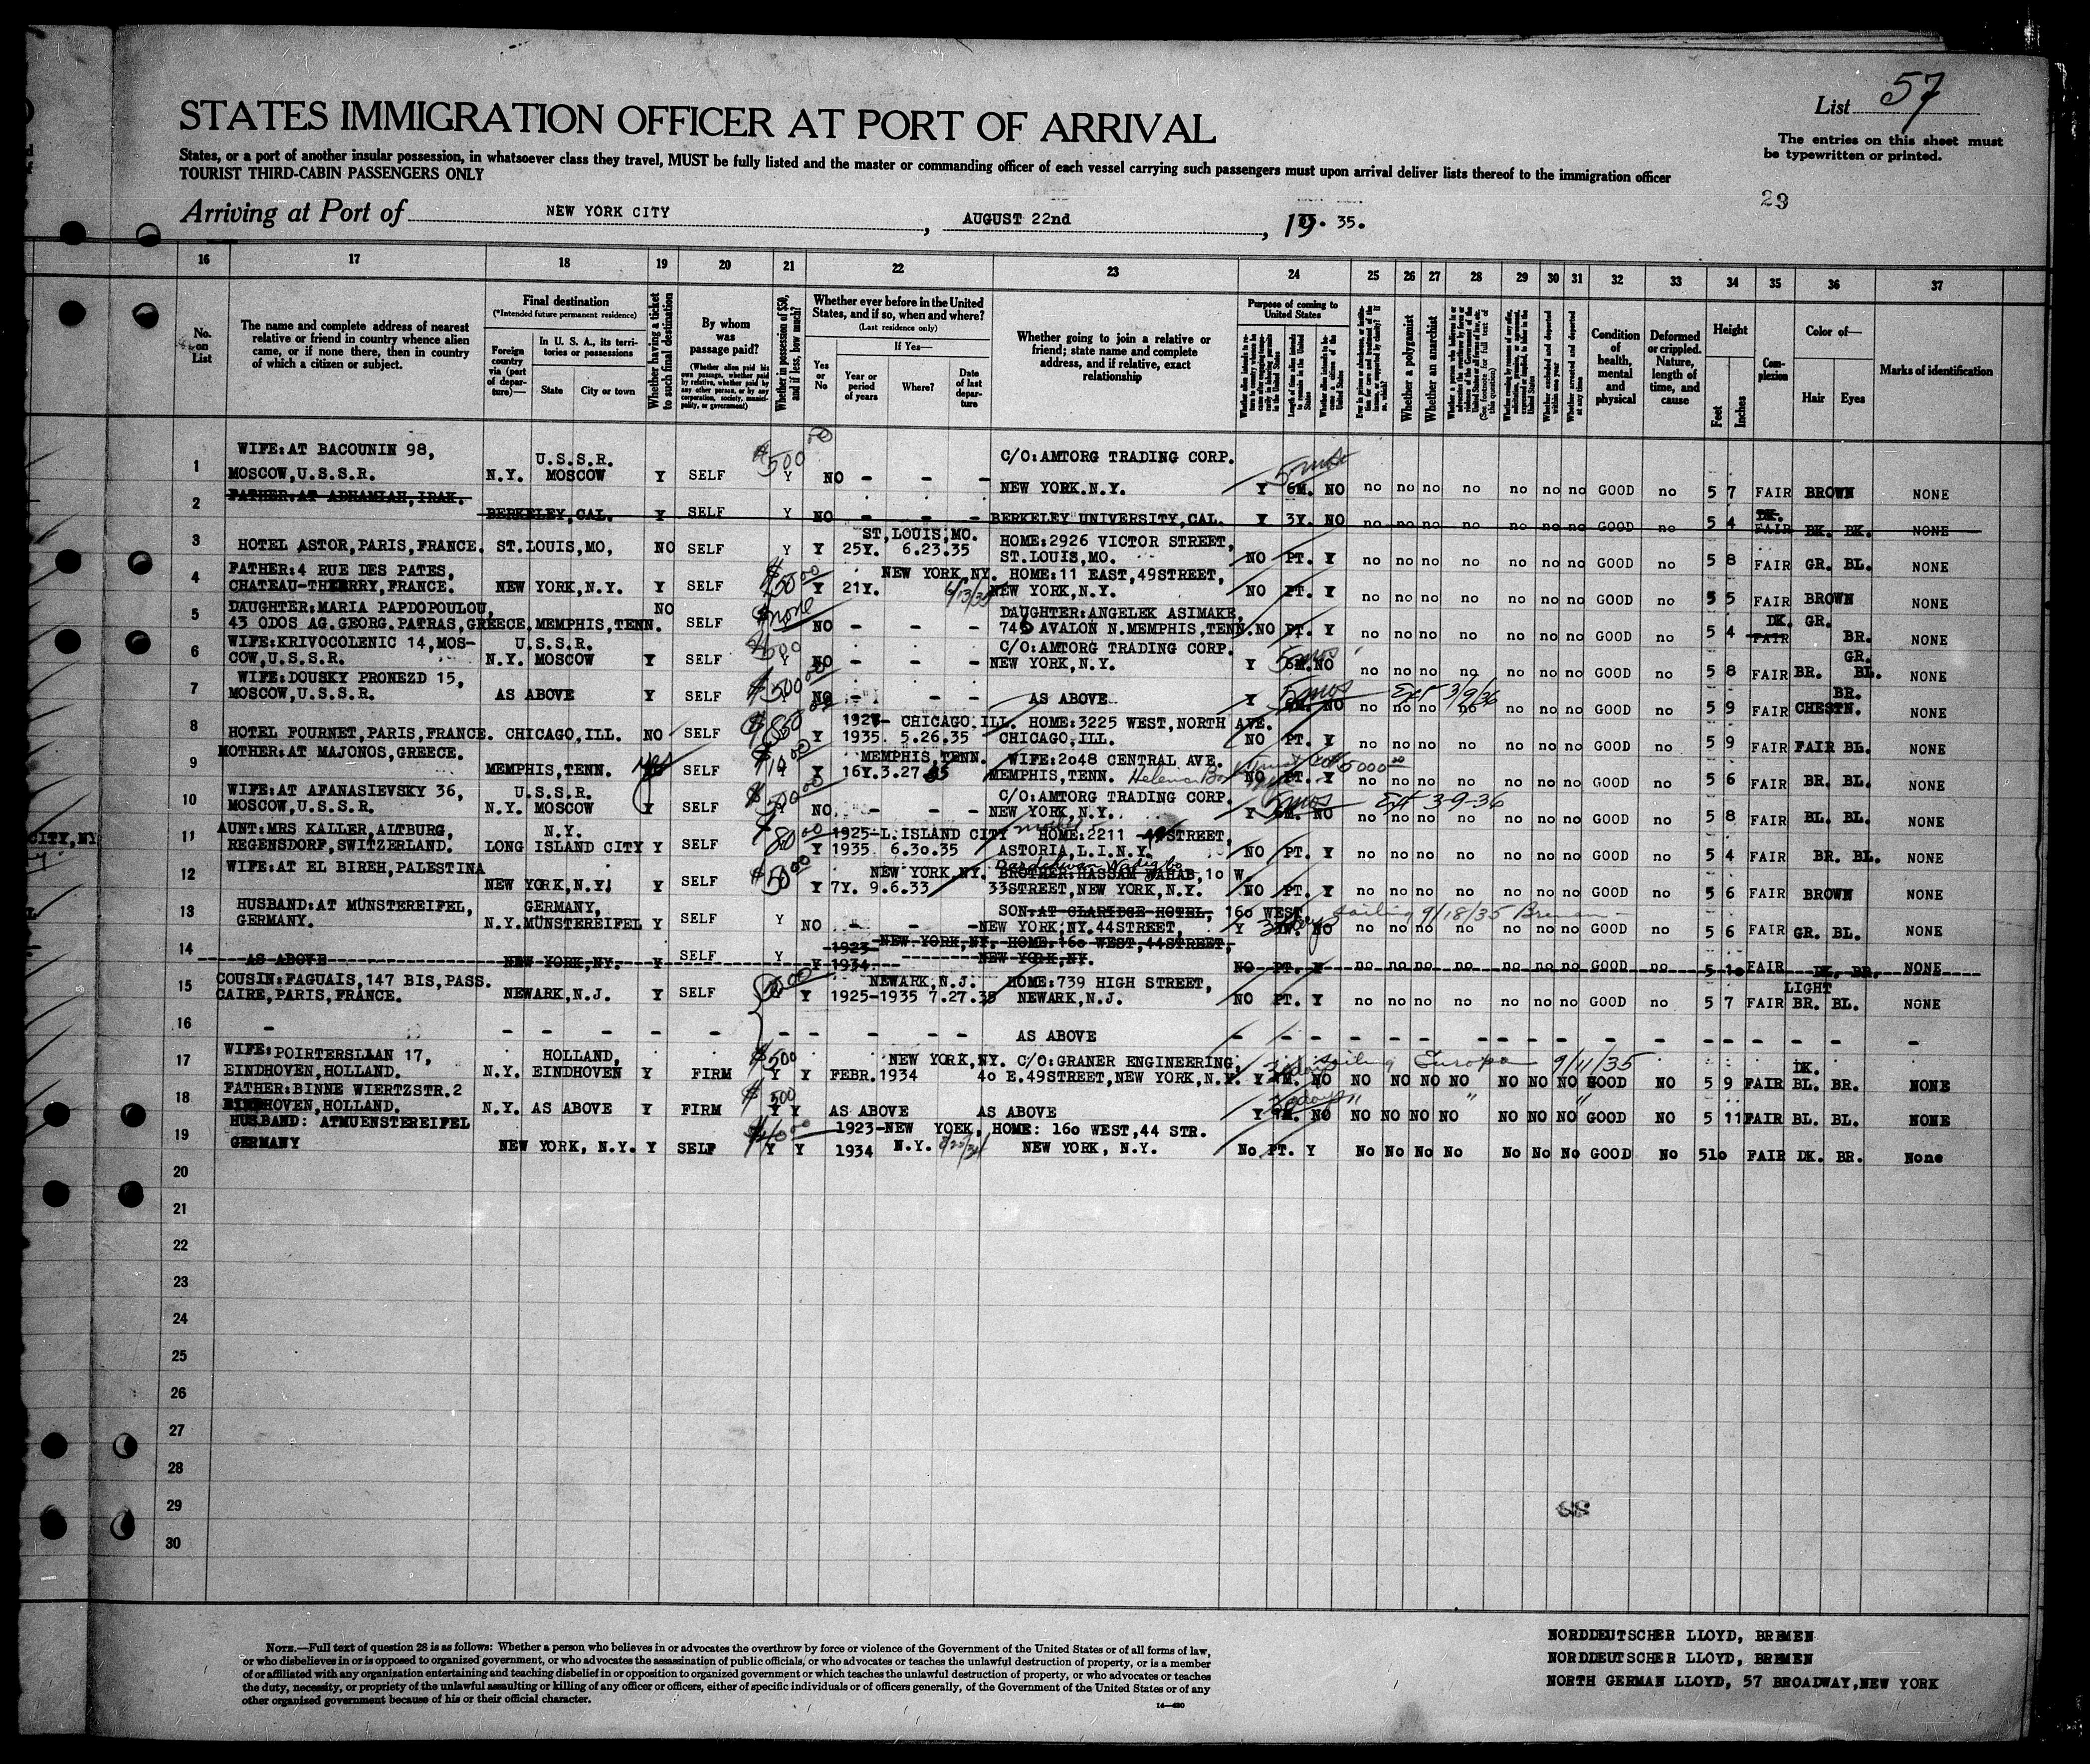 List 57
STATES IMMIGRATION OFFICER AT PORT OF ARRIVAL
The entries on this sheet must
be typewritten or printed.
States, or a port of another insular possession, in whatsoever class they travel, MUST be fully listed and the master or commanding officer of each vessel carrying such passengers must upon arrival deliver lists thereof to the immigration officer
TOURIST THIRD-CABIN PASSENGERS ONLY
23
Arriving at Port of NEW YORK CITY, AUGUST 22nd, 19 35.
16 17 18 19 20 21 22 23 24 25 26 27 28 29 30 31 32 33 34 35 36 37
No. on List
The name and complete address of nearest relative or friend in country whence alien came, or if none there, then in country of which a citizen or subject.
Final destination
(*Intended future permanent residence)
Foreign country via (port of departure)—
In U. S. A., its territories or possessions
State
City or town
Whether having a ticket to such final destination
By whom was passage paid?
(Whether alien paid his own passage, whether paid by relative, whether paid by any other person, or by any corporation, society, municipality, or government)
Whether in possession of $50, and if less, how much?
Whether ever before in the United States, and if so, when and where?
(Last residence only)
Yes or No
If Yes—
Year or period of years
Where?
Date of last departure
Whether going to join a relative or friend; state name and complete address, and if relative, exact relationship
Purpose of coming to United States
Whether a polygamist
Whether an anarchist
Whether excluded and deported within one year
Whether arrested and deported at any time
Condition of health, mental and physical
Deformed or crippled. Nature, length of time, and cause
Height
Feet
Inches
Complexion
Color of—
Hair
Eyes
Marks of identification
1 WIFE:AT BACOUNIN 98, U.S.S.R. $500 C/O:AMTORG TRADING CORP. 5 mos
MOSCOW,U.S.S.R. N.Y. MOSCOW Y SELF Y NO - - - NEW YORK.N.Y. Y 6M. NO no no no no no no no GOOD no 5 7 FAIR BROWN NONE
2 FATHER:AT ADHAMIAH,IRAK.
BERKELEY,CAL. Y SELF Y NO - - - BERKELEY UNIVERSITY,CAL. Y 3Y. NO no no no no no no no GOOD no 5 4 DK. FAIR BK. BK. NONE
3 ST.LOUIS,MO. HOME:2926 VICTOR STREET,
HOTEL ASTOR,PARIS,FRANCE. ST.LOUIS,MO, NO SELF Y Y 25Y. 6.23.35 ST.LOUIS,MO. NO PT. Y no no no no no no no GOOD no 5 8 FAIR GR. BL. NONE
4 FATHER:4 RUE DES PATES, NEW YORK,NY. HOME:11 EAST,49STREET,
CHATEAU-THIERRY,FRANCE. NEW YORK,N.Y. Y SELF $50 00 Y 21Y. 6/13/35 NEW YORK,N.Y. NO PT. Y no no no no no no no GOOD no 5 5 FAIR BROWN NONE
5 DAUGHTER:MARIA PAPDOPOULOU, NO $none DAUGHTER:ANGELEK ASIMAKE,
43 ODOS AG.GEORG.PATRAS,GREECE,MEMPHIS,TENN. SELF NO - - - 746 AVALON N.MEMPHIS,TENN. NO PT. Y no no no no no no no GOOD no 5 4 DK. FAIR GR. BR. NONE
6 WIFE:KRIVOCOLENIC 14,MOS- U.S.S.R. $500 C/O:AMTORG TRADING CORP. 5 mos
COW,U.S.S.R. N.Y. MOSCOW Y SELF Y NO - - - NEW YORK,N.Y. Y 6M. NO no no no no no no no GOOD no 5 8 FAIR BR. GR. BL. NONE
7 WIFE:DOUSKY PRONEZD 15, $500 00 5 mos Ext 3/9/36
MOSCOW,U.S.S.R. AS ABOVE Y SELF Y NO - - - AS ABOVE Y 6M. NO no no no no no no no GOOD no 5 9 FAIR CHESTN. BR. NONE
8 $850 192 - CHICAGO.ILL. HOME:3225 WEST,NORTH AVE.
HOTEL FOURNET,PARIS,FRANCE. CHICAGO,ILL. NO SELF Y 1935 5.26.35 CHICAGO,ILL. NO PT. Y no no no no no no no GOOD no 5 9 FAIR FAIR BL. NONE
9 MOTHER:AT MAJONOS,GREECE. MEMPHIS,TENN. WIFE:2048 CENTRAL AVE.
MEMPHIS,TENN. yes SELF $14 00 Y 16Y.3.27.35 MEMPHIS,TENN. NO PT. Y no no no no no no no GOOD no 5 6 FAIR BR. BL. NONE
10 WIFE:AT AFANASIEVSKY 36, U.S.S.R. $500 00 C/O:AMTORG TRADING CORP. 5 mos Ext 3-9-36
MOSCOW,U.S.S.R. N.Y. MOSCOW Y SELF NO. - - - NEW YORK,N.Y. Y 6M. NO no no no no no no no GOOD no 5 8 FAIR BL. BL. NONE
CITY,NY
11 AUNT:MRS KALLER,ALTBURG, N.Y. $80 00 1925-L.ISLAND CITY HOME:2211 STREET,
REGENSDORF,SWITZERLAND. LONG ISLAND CITY Y SELF Y 1935 6.30.35 ASTORIA,L.I.N.Y. NO PT. Y no no no no no no no GOOD no 5 4 FAIR BR. BL. NONE
12 WIFE:AT EL BIREH,PALESTINA $50 00 NEW YORK,NY. BROTHER:HASSAN WAHAB,10 W.
NEW YORK,N.Y. Y SELF Y 7Y. 9.6.33 33STREET,NEW YORK,N.Y. NO PT. Y no no no no no no no GOOD no 5 6 FAIR BROWN NONE
13 HUSBAND:AT MÜNSTEREIFEL, GERMANY, SON.AT CLARIDGE HOTEL, 160 WEST sailing 9/18/35 Bremen
GERMANY. N.Y.MÜNSTEREIFEL Y SELF Y NO - - - NEW YORK,NY.44STREET, Y NO no no no no no no no GOOD no 5 6 FAIR GR. BL. NONE
14 1923-NEW YORK,NY. HOME.160 WEST,44STREET,
AS ABOVE NEW YORK,NY. Y SELF Y Y 1934. NEW YORK,NY. NO PT. Y no no no no no no no GOOD no 5 10 FAIR DK. BR. NONE
15 COUSIN:FAGUAIS,147 BIS,PASS. NEWARK,N.J. HOME:739 HIGH STREET, LIGHT
CAIRE,PARIS,FRANCE. NEWARK,N.J. Y SELF Y 1925-1935 7.27.35 NEWARK,N.J. NO PT. Y no no no no no no no GOOD no 5 7 FAIR BR. BL. NONE
16 - - - - - - - - - AS ABOVE - - - - - - - - - - - - - - - - - -
17 WIFE:POIRTERSLAAN 17, HOLLAND, $500 NEW YORK,NY. C/O:GRANER ENGINEERING, sailing Europa 9/11/35 DK.
EINDHOVEN,HOLLAND. N.Y. EINDHOVEN Y FIRM Y Y FEBR.1934 40 E.49STREET,NEW YORK,N.Y. Y NO NO NO NO NO NO NO NO GOOD NO 5 9 FAIR BL. BR. NONE
18 FATHER:BINNE WIERTZSTR.2 $500
EINDHOVEN,HOLLAND. N.Y. AS ABOVE Y FIRM Y Y AS ABOVE AS ABOVE Y NO NO NO NO NO NO NO NO GOOD NO 5 11 FAIR BL. BL. NONE
19 HUSBAND: ATMUENSTEREIFEL 1923-NEW YOEK, HOME: 160 WEST,44 STR.
GERMANY NEW YORK, N.Y. Y SELF Y Y 1934 N.Y. NEW YORK, N.Y. No PT. Y No No No No No No No GOOD No 510 FAIR DK. BR. None
20
21
22
23
24
25
26
27
28
29
30
NOTE.—Full text of question 28 is as follows: Whether a person who believes in or advocates the overthrow by force or violence of the Government of the United States or of all forms of law,
or who disbelieves in or is opposed to organized government, or who advocates the assassination of public officials, or who advocates or teaches the unlawful destruction of property, or is a member
of or affiliated with any organization entertaining and teaching disbelief in or opposition to organized government or which teaches the unlawful destruction of property, or who advocates or teaches
the duty, necessity, or propriety of the unlawful assaulting or killing of any officer or officers, either of specific individuals or of officers generally, of the Government of the United States or of any
other organized government because of his or their official character.
14—430
NORDDEUTSCHER LLOYD, BREMEN
NORDDEUTSCHER LLOYD, BREMEN
NORTH GERMAN LLOYD, 57 BROADWAY,NEW YORK